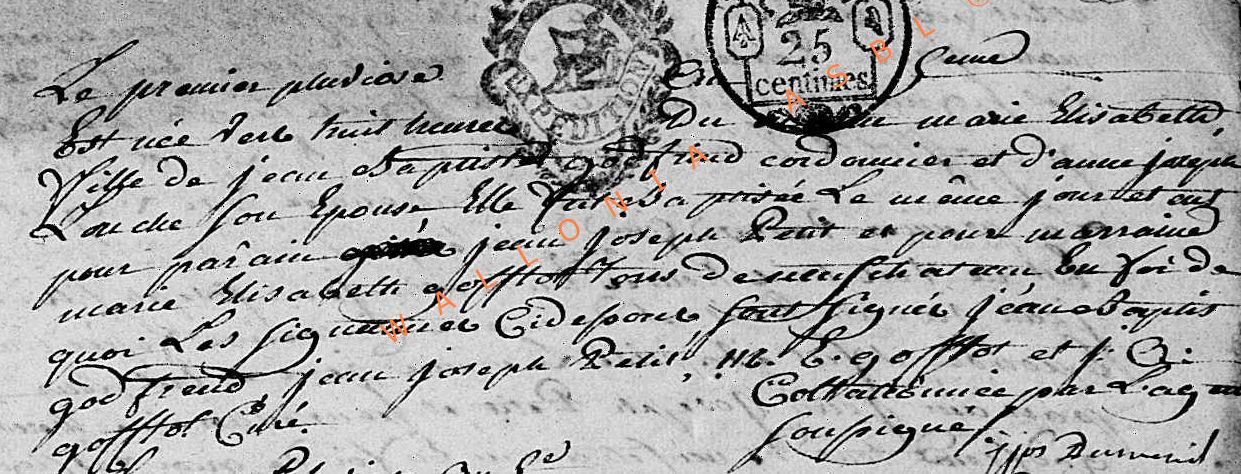 Le premier pluviose
25
centimes
Est née vers huit heures Du marie Elisabethe
fille de jean Baptiste godfrind cordonnier et d'anne joseph
Louche son Epouse Elle fut Baptisée Le même jour et eut
pour parain jean joseph Petit et pour marraine
marie Elisabeth gofflot tous de neufchateau En foi de
quoi Les signatures Cidessous sont signés jean Baptis
godfreud jean joseph Petit, M. E. gofflot et J. Q.
gofflot Curé. Collationnée par L'agent
soussigné
WALLONIA ASBL